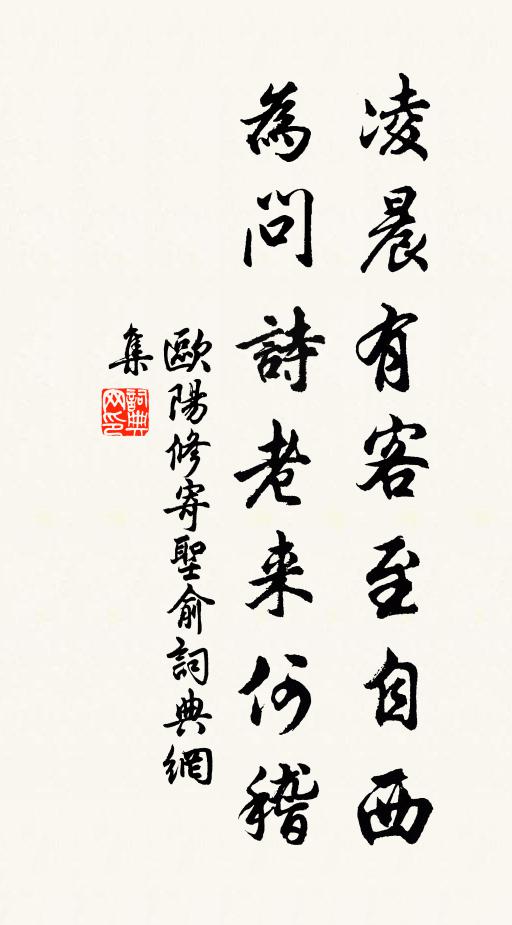 凌晨有客至自西
為問詩老来何稽
歐陽修寄聖俞詞典網
集
詞典
网印